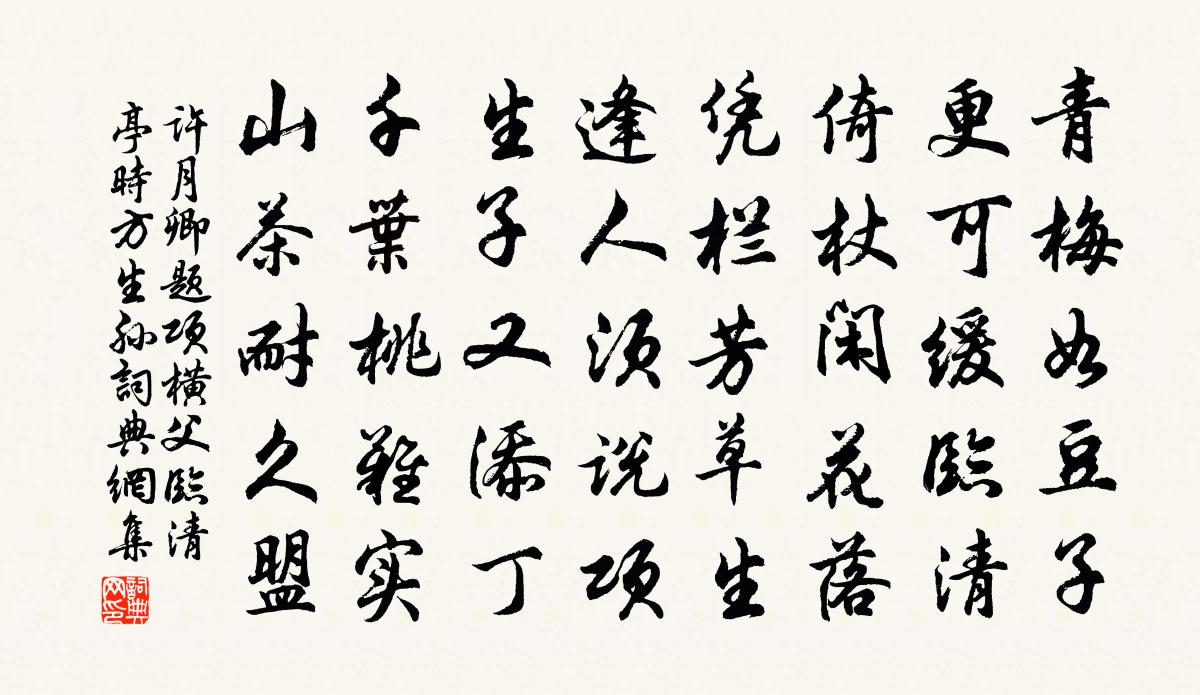 青梅如豆子
更可缓臨清
倚杖閑花落
凭栏芳草生
逢人须说项
生子又添丁
千葉桃難实
山茶耐久盟
许月卿题项横父臨清
亭時方生孙詞典網集
詞典网印